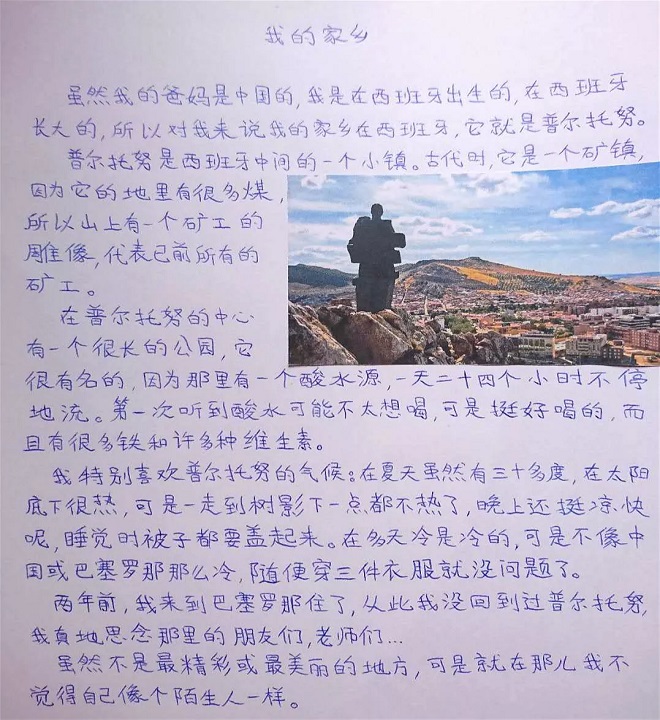 我的家乡
虽然我的爸妈是中国的，我是在西班牙出生的，在西班牙
长大的，所以对我来说我的家乡在西班牙，它就是普尔托努。
普尔托努是西班牙中间的一个小镇。古代时，它是一个矿镇，
因为它的地里有很多煤，
所以山上有一个矿工的
雕像，代表已前所有的
矿工。
在普尔托努的中心
有一个很长的公园，它
很有名的，因为那里有一个酸水源，一天二十四个小时不停
地流。第一次听到酸水可能不太想喝，可是挺好喝的，而
且有很多铁和许多种维生素。
我特别喜欢普尔托努的气候。在夏天虽然有三十多度，在太阳
底下很热，可是一走到树影下一点都不热了，晚上还挺凉快
呢，睡觉时被子都要盖起来。在冬天冷是冷的，可是不像中
国或巴塞罗那那么冷，随便穿三件衣服就没问题了。
两年前，我来到巴塞罗那住了，从此我没回到过普尔托努，
我真地思念那里的朋友们，老师们...
虽然不是最精彩或最美丽的地方，可是就在那儿我不
觉得自己像个陌生人一样。